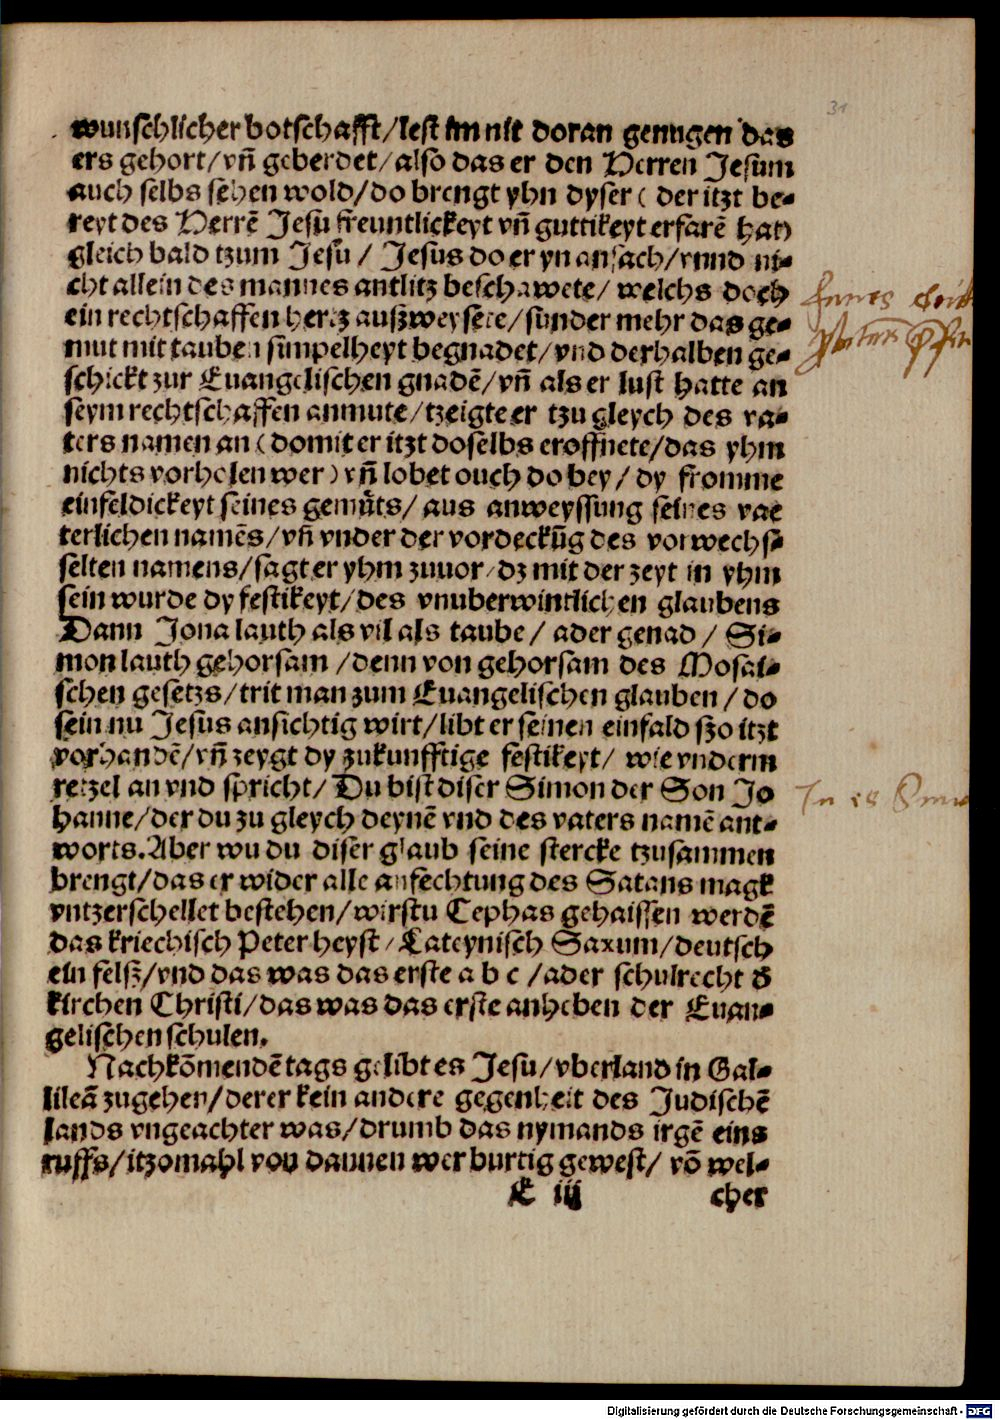 31
wunschlicher botschafft/lest im nit doran genugen das
ers gehort/vn̄ geberdet/also das er den Herren Jesum
auch selbs sehen wold/do brengt yhn dyser ( der itzt be⸗
reyt des Herrē Jesu freuntlickeyt vn̄ guttikeyt erfarē hat)
gleich bald tzum Jesu / Jesus do er yn ansach/vnnd ni⸗
cht allein des mannes antlitz beschawete/ welchs doch
ein rechtschaffen hertz außweysete/sunder mehr das ge⸗
mut mit tauben simpelheyt begnadet/vnd derhalben ge⸗
schickt zur Euangelischen gnadē/vn̄ als er lust hatte an
seym rechtschaffen anmute/tzeigte er tzu gleych des va⸗
ters namen an ( domit er itzt doselbs eroffnete/das yhm
nichts vorholen wer ) vn̄ lobet ouch do bey/ dy fromme
einfeldickeyt seines gemuts/ aus anweyssung seines vae
terlichen namēs/vn̄ vnder der vordeckūg des vorwechs⸗
selten namens/sagt er yhm zuuor/dz mit der zeyt in yhm
sein wurde dy festikeyt/des vnuberwintlichen glaubens
Dann Jona lauth als vil als taube/ ader genad/ Si⸗
mon lauth gehorsam /denn von gehorsam des Mosai⸗
schen gesetzs/trit man zum Euangelischen glauben/do
sein nu Jesus ansichtig wirt/libt er seinen einfald szo itzt
vorhandē/vn̄ zeygt dy zukunfftige festikeyt/ wie vnderm
retzel an vnd spricht/ Du bist diser Simon der Son Jo
hanne/der du zu gleych deynē vnd des vaters namē ant⸗
worts. Aber wu du diser glaub seine stercke tzusammen
brengt/das er wider alle anfechtung des Satans magk
vntzerschellet bestehen/wirstu Cephas gehaissen werdē
das kriechisch Peter heyst/Lateynisch Saxum/deutsch
ein felß/vnd das was das erste a b c /ader schulrecht d̄
kirchen Christi/das was das erste anheben der Euan⸗
gelischen schulen.
Nachkōmendē tags gelibt es Jesu/vberland in Gal⸗
lileā zugehen/derer kein andere gegenheit des Judischē
lands vngeachter was/drumb das nymands irgē eins
ruffs/itzomahl von dannen wer burtig gewest/ vō wel⸗
E iij cher
Digitalisierung gefördert durch die Deutsche Forschungsgemeinschaft - DFG